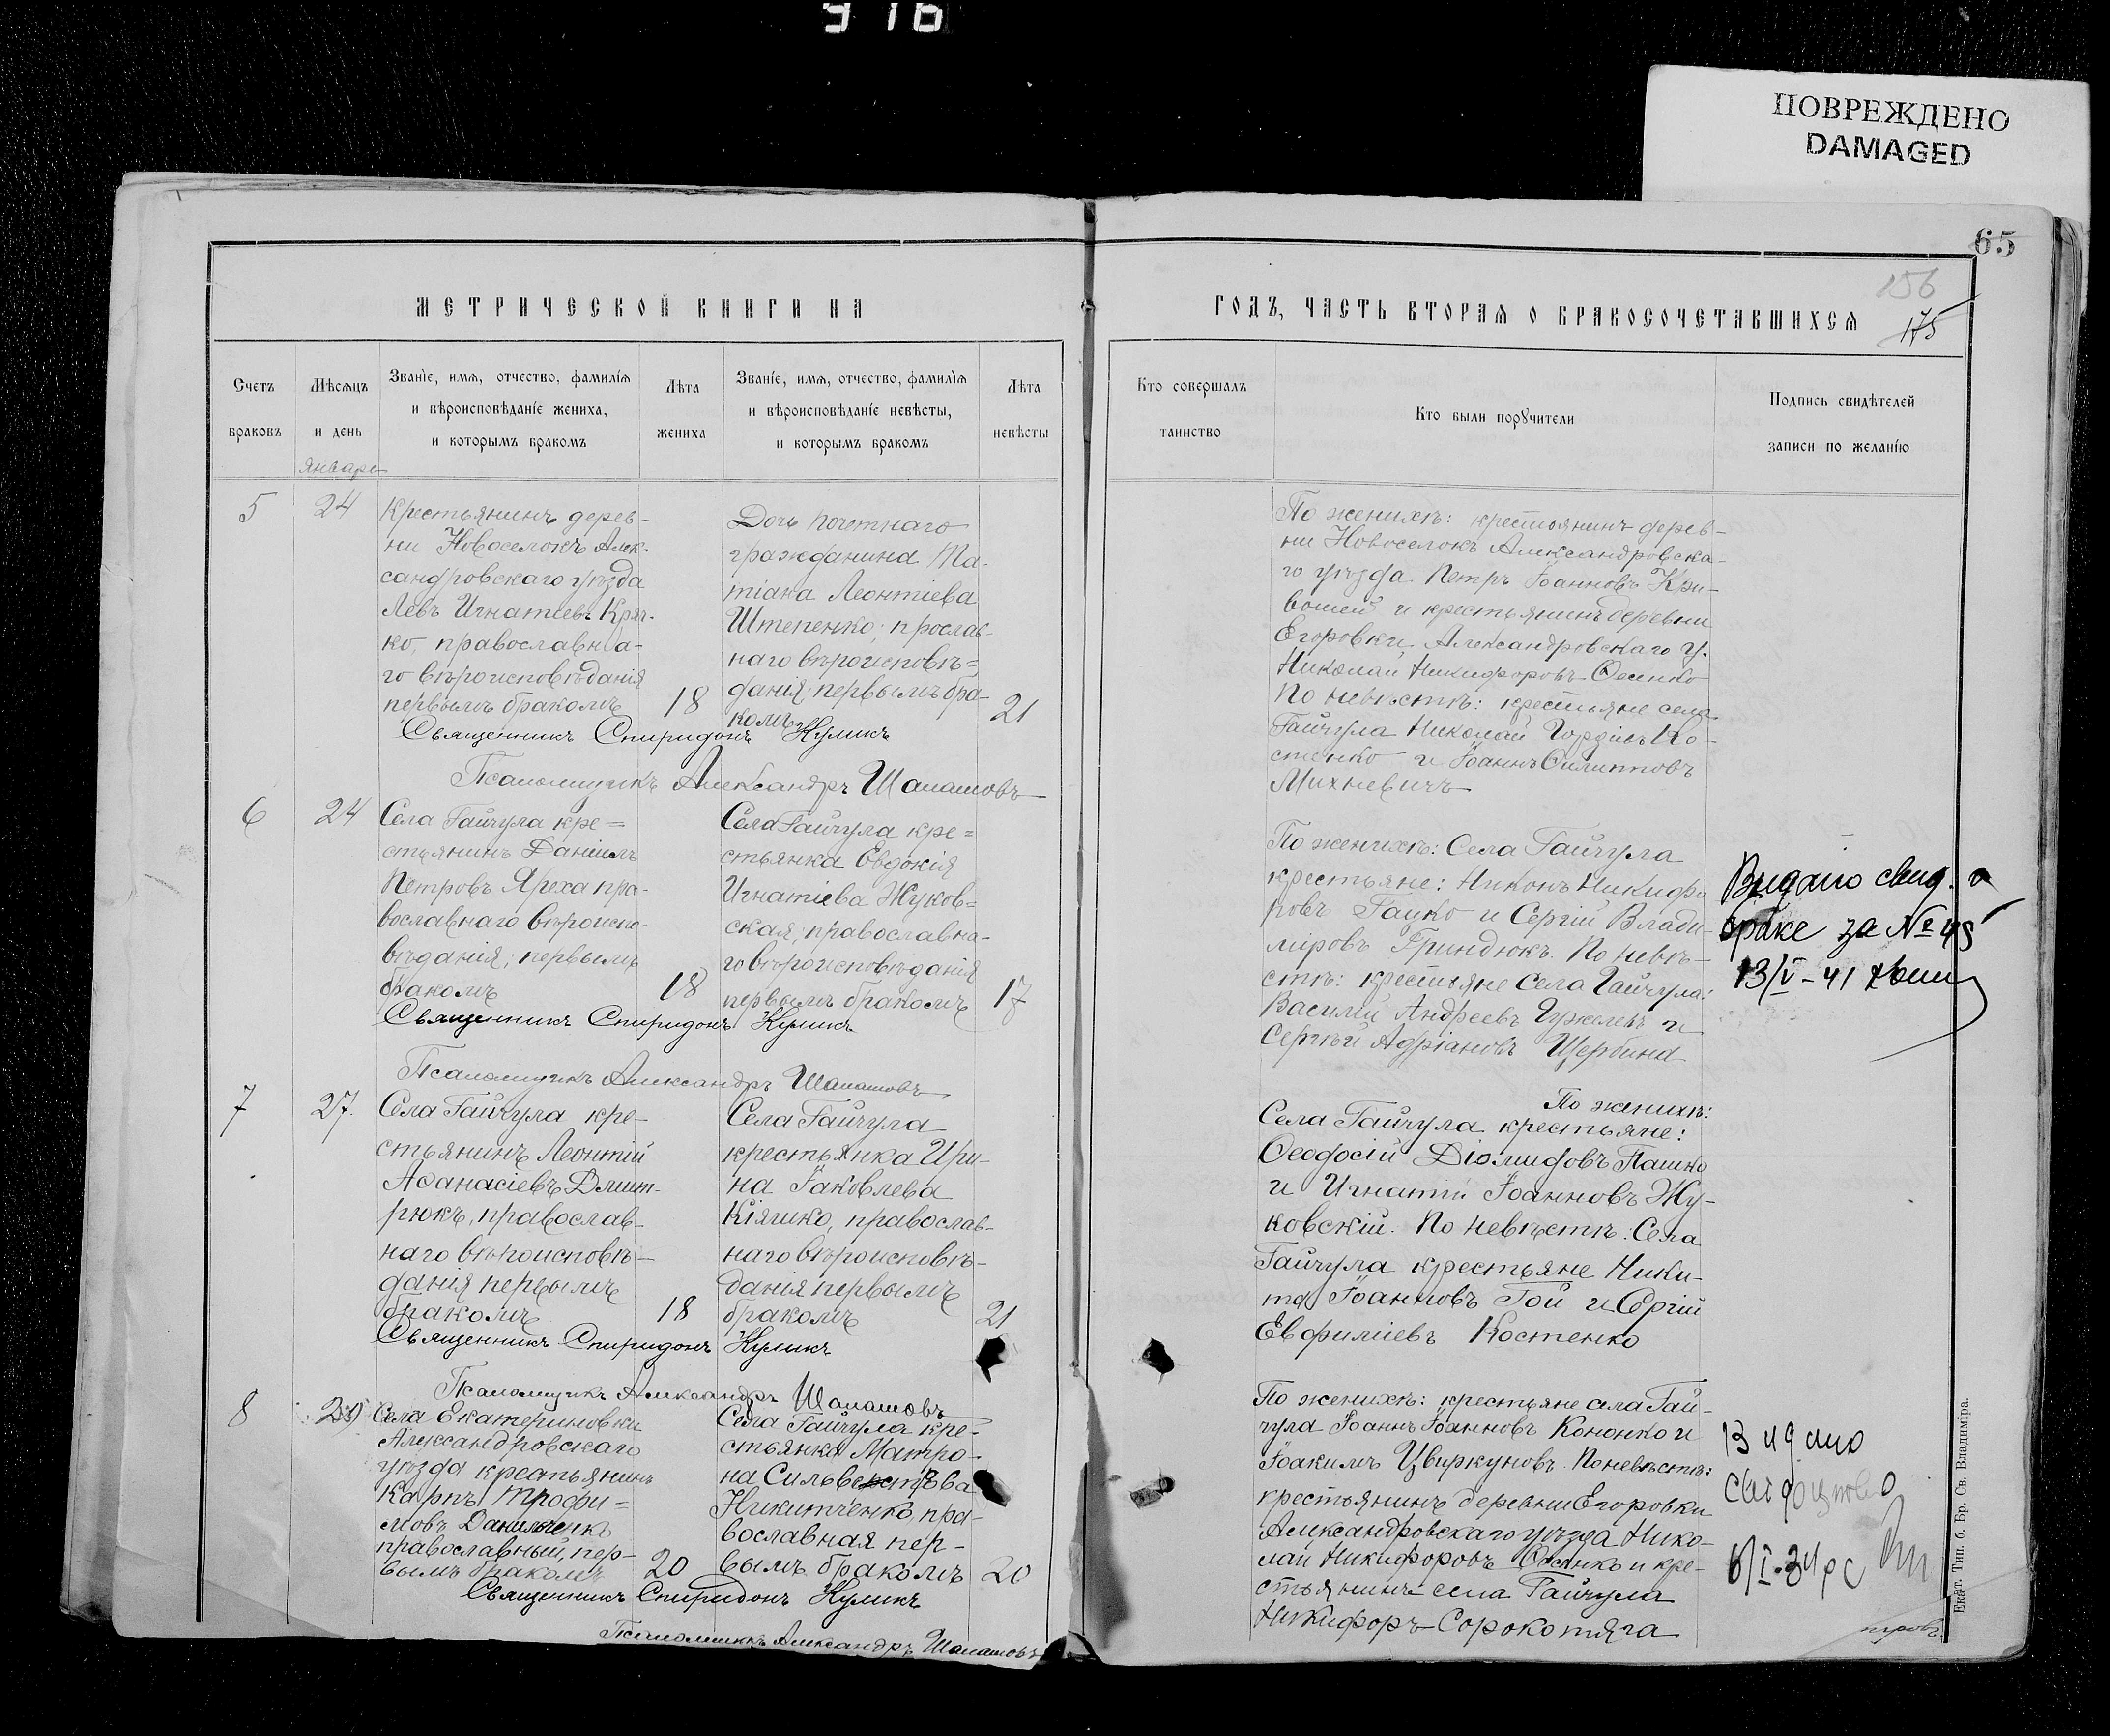 916
ПОВРЕЖДЕНО
DAMAGED
65
156
175
МЕТРИЧЕСКОЙ КНИГИ НА
ГОДЪ, ЧАСТЬ ВТОРАЯ О БРАКОСОЧЕТАВШИХСЯ
Счетъ
браковъ
Мѣсяцъ
и день
Званіе, имя, отчество, фамилія
и вѣроисповѣданіе жениха,
и которымъ бракомъ
Лѣта
жениха
Званіе, имя, отчество, фамилія
и вѣроисповѣданіе невѣсты,
и которымъ бракомъ
Лѣта
невѣсты
Кто совершалъ
таинство
Кто были поручители
Подпись свидѣтелей
записи по желанію
январь
5
24
Крестьянинъ дерев-
ни Новоселокъ Алек-
сандровскаго уѣзда
Левъ Игнатіевъ Кряч-
ко, православна-
го вѣроисповѣданія
первымъ бракомъ
18
Дочь почетнаго
гражданина Та-
тіана Леонтіева
Штепенко; прослав-
наго вѣроисповѣ=
данія; первымъ бра-
комъ
21
Священникъ Спиридонъ Куликъ
Псаломщикъ Александръ Шапашовъ
По женихѣ: крестьянинъ дерев-
ни Новоселокъ Александровска-
го уѣзда Петръ Іоанновъ Кри-
вошей и крестьянинъ деревни
Егоровки, Александровскаго у.
Николай Никифоровъ Осенко
По невѣстѣ: крестьяне села
Гайчула Николай Гордіевъ Ко-
стенко и Іоаннъ Филипповъ
Михневичъ
6
24
Села Гайчула кре=
стьянинъ Даніилъ
Петровъ Яреха пра-
вославнаго вѣроиспо-
вѣданія; первымъ
бракомъ
18
Села Гайчула кре=
стьянка Евдокія
Игнатіева Жуков=
ская; православна-
го вѣроисповѣданія
первымъ бракомъ
17
Священникъ Спиридонъ Куликъ
Псаломщикъ Александръ Шапашовъ
По женихѣ: Села Гайчула
крестьяне: Никонъ Никифо
ровъ Гацко и Сергій Влади-
міровъ Гриндюкъ. По невѣ-
стѣ: крестьяне Села Гайчула:
Василій Андреевъ Гужелевъ и
Сергѣй Адріановъ Щербина
Видано свид. о
браке за № 45
13/V-41
7
27.
Села Гайчула кре-
стьянинъ Леонтій
Аѳанасіевъ Дмит-
рюкъ, православ-
наго вѣроисповѣ-
данія первымъ
бракомъ
18
Села Гайчула
крестьянка Ири-
на Іаковлева
Кіяшко, православ-
наго вѣроисповѣ-
данія первымъ
бракомъ
21
Священникъ Спиридонъ Куликъ
Псаломщикъ Александръ Шапашовъ
По женихѣ:
Села Гайчула крестьяне:
Ѳеодосій Діомидовъ Пашко
и Игнатій Іоанновъ Жу-
ковскій. По невѣстѣ: Села
Гайчула крестьяне Ники-
та Іоанновъ Гой и Сергій
Евфиміевъ Костенко
8
Села Екатериновки
Александровскаго
уѣзда крестьянинъ
Карпъ Трофи=
мовъ Данильченко
православный, пер-
вымъ бракомъ
20
Села Гайчула кре-
стьянка Матро-
на Сильвестрова
Никитченко, пра-
вославная пер-
вымъ бракомъ
20
Священникъ Спиридонъ Куликъ
Псаломщикъ Александръ Шапашовъ
По женихѣ: крестьяне села Гай-
чула Іоаннъ Іоанновъ Кононко и
Іоакимъ Цвиркуновъ. По невѣстѣ:
крестьянинъ деревни Егоровки
Александровскаго уѣзда Нико-
лай Никифоровъ Осенко и кре-
стьянинъ села Гайчула
Никифоръ Сорокотяга
Видано
свідоцтво
6/I-34 р
Екат. Тип. б. Бр. Св. Владиміра.